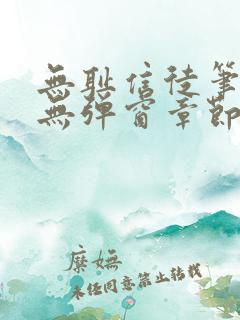 無耻信徒筆
無彈窗章節
糜嫵
未经同意禁止转载